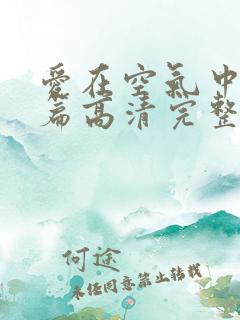 愛在空氣中
篇高清完整
何途
未经同意禁止转载